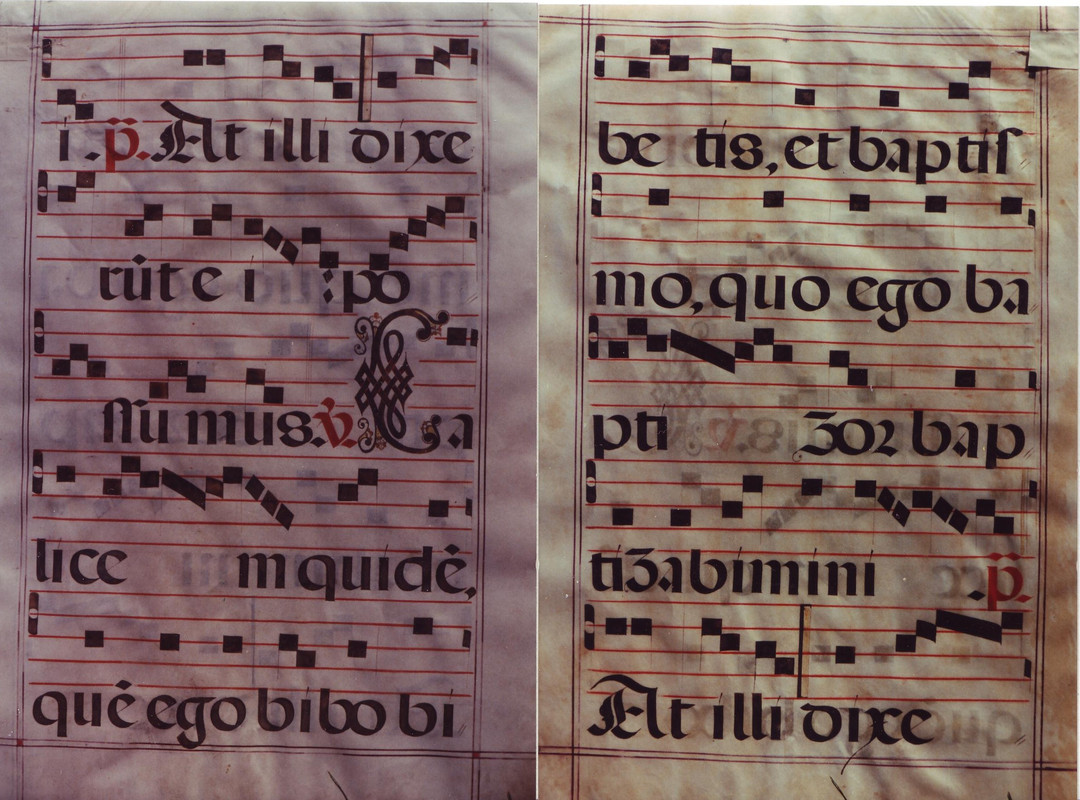 i. p̈. At illi dixe
rūt e i : po
ssu mus. v̈. Ca
lice m quidē,
quē ego bibo bi
be tis, et baptis
mo, quo ego ba
pti zor bap
tizabimini . p̈.
At illi dixe